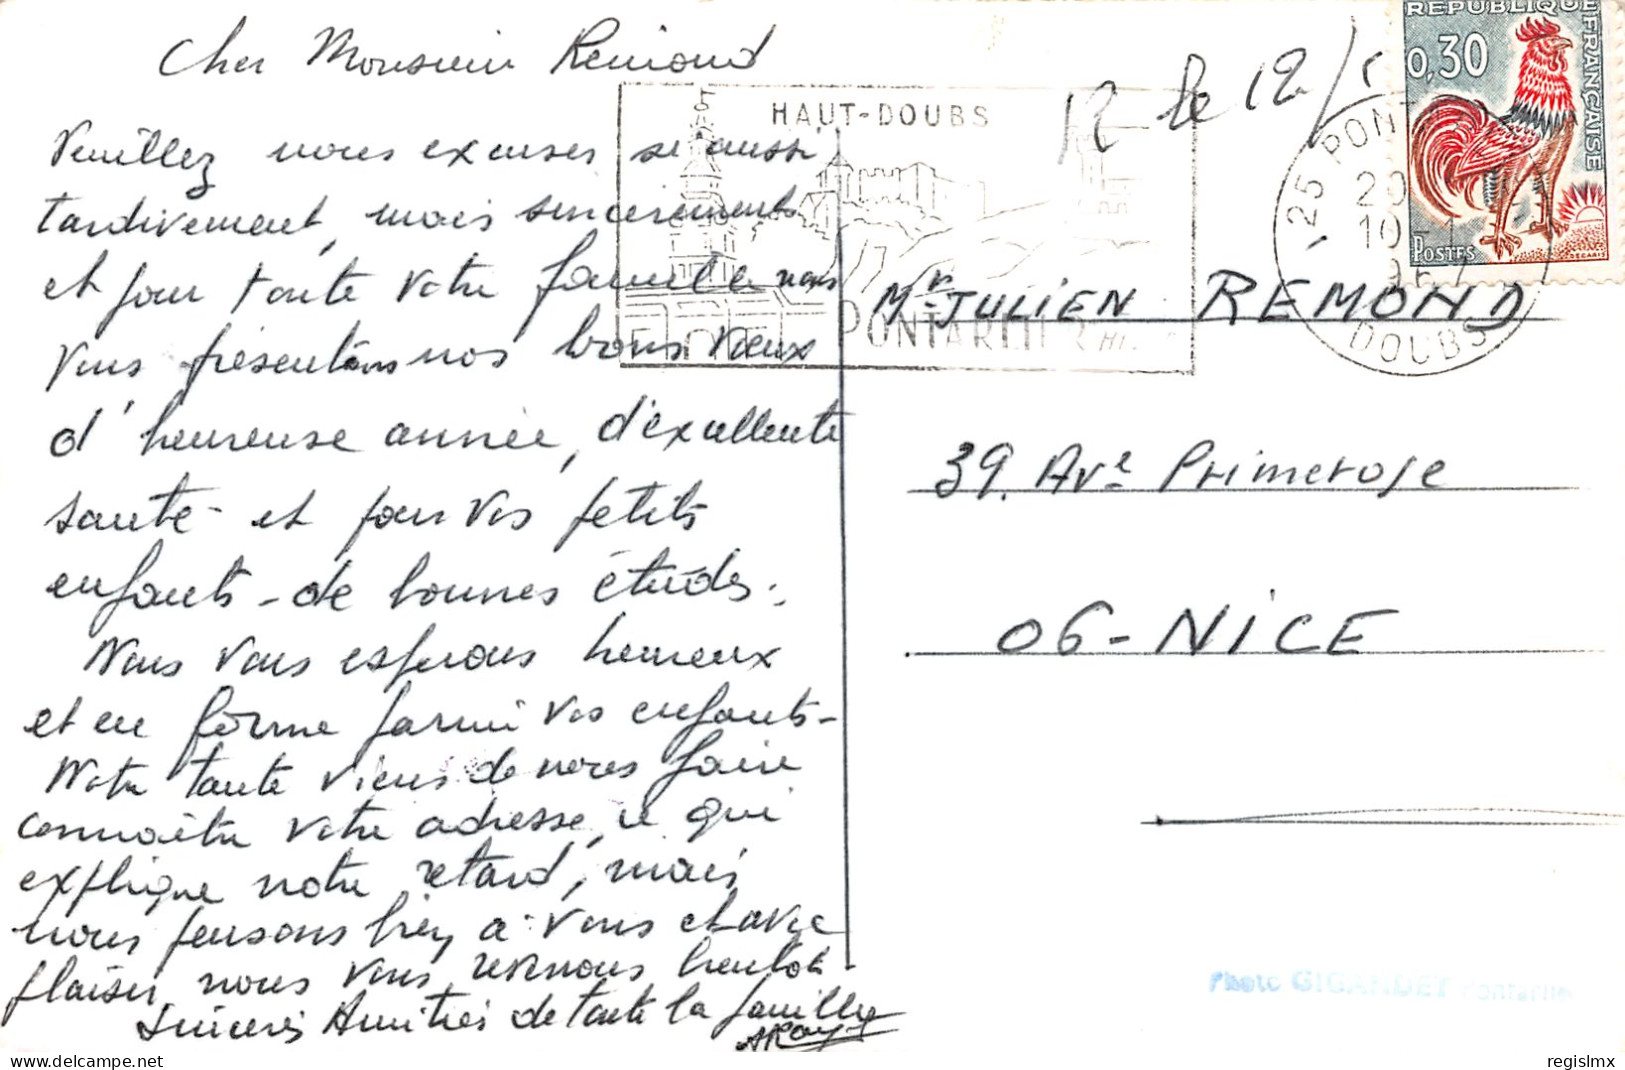 Cher Monsieur Rémond
12 le 12/1
Veuillez nous excuser si aussi
tardivement, mais sincèrement
et pour toute votre famille nous
vous présentons nos bons vœux
d'heureuse année, d'excellente
santé - et pour vos petits
enfants - de bonnes études.
Nous vous espérons heureux
et en forme parmi vos enfants -
Notre tante viens de nous faire
connaître votre adresse, ce qui
explique notre retard, mais
nous pensons bien à vous et avec
plaisir nous vous reverrons bientôt -
Sincères Amitiés de toute la famille
HAUT-DOUBS
PONTARLIER
REPUBLIQUE FRANÇAISE
0,30
POSTES
DECARIS
25 PONT
20
10 - 1
1967
DOUBS
Mr JULIEN REMOND
39. Ave Primerose
06 - NICE
Photo GIGANDET Pontarlier
regislmx
delcampe.net